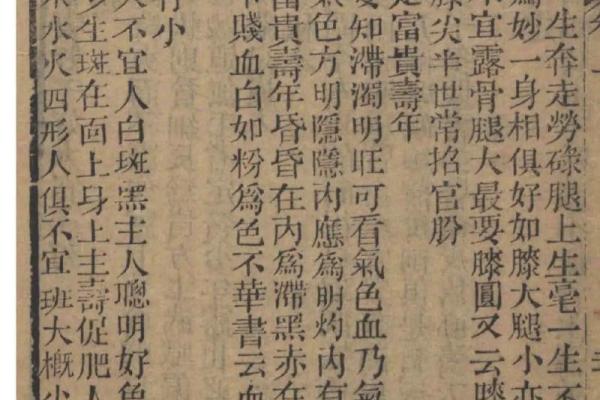 生奔走勞碌腿上生毫一生不
爲妙一身相俱好如膝大腿小亦
不宜露骨腿大最要膝圓又云膝
膝尖半世常招官
富貴壽年
知滯濁明旺可看氣色血乃氣
氣色方明隱隱內應爲明灼內有
富貴壽年昏昏在內爲滯黑赤在
賤血白如粉爲色不華書云血
小
不宜人白斑黑主人聰明好色
生斑在面上身上主壽促肥人
水火四形人俱不宜班大概少